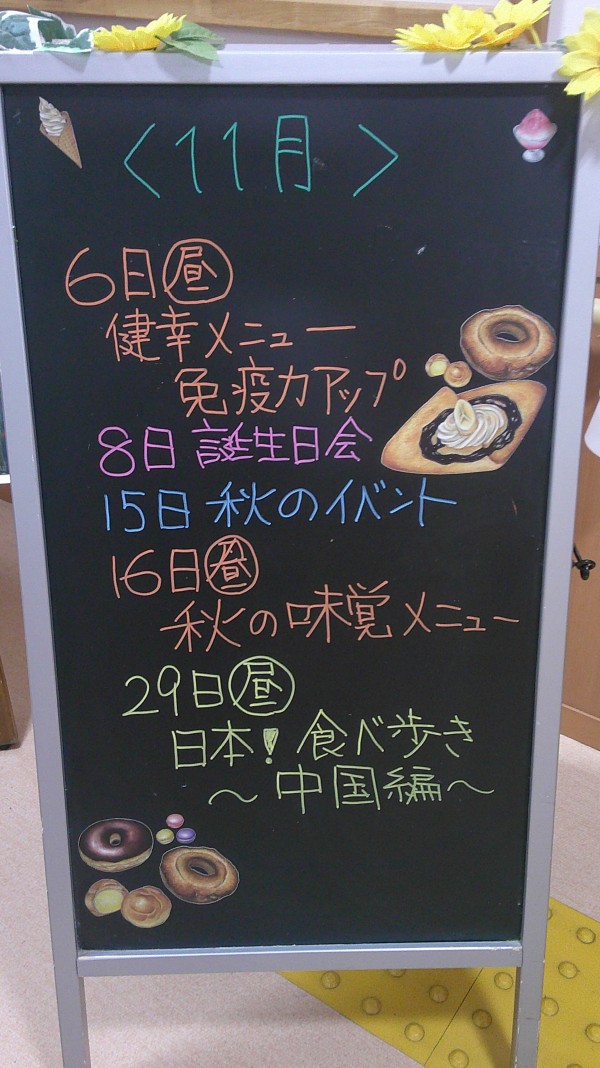 〈11月〉
6日㊐昼
健幸メニュー
免疫力アップ
8日 誕生日会
15日 秋のイベント
16日 昼
秋の味覚メニュー
29日 昼
日本!食べ歩き
～中国編～